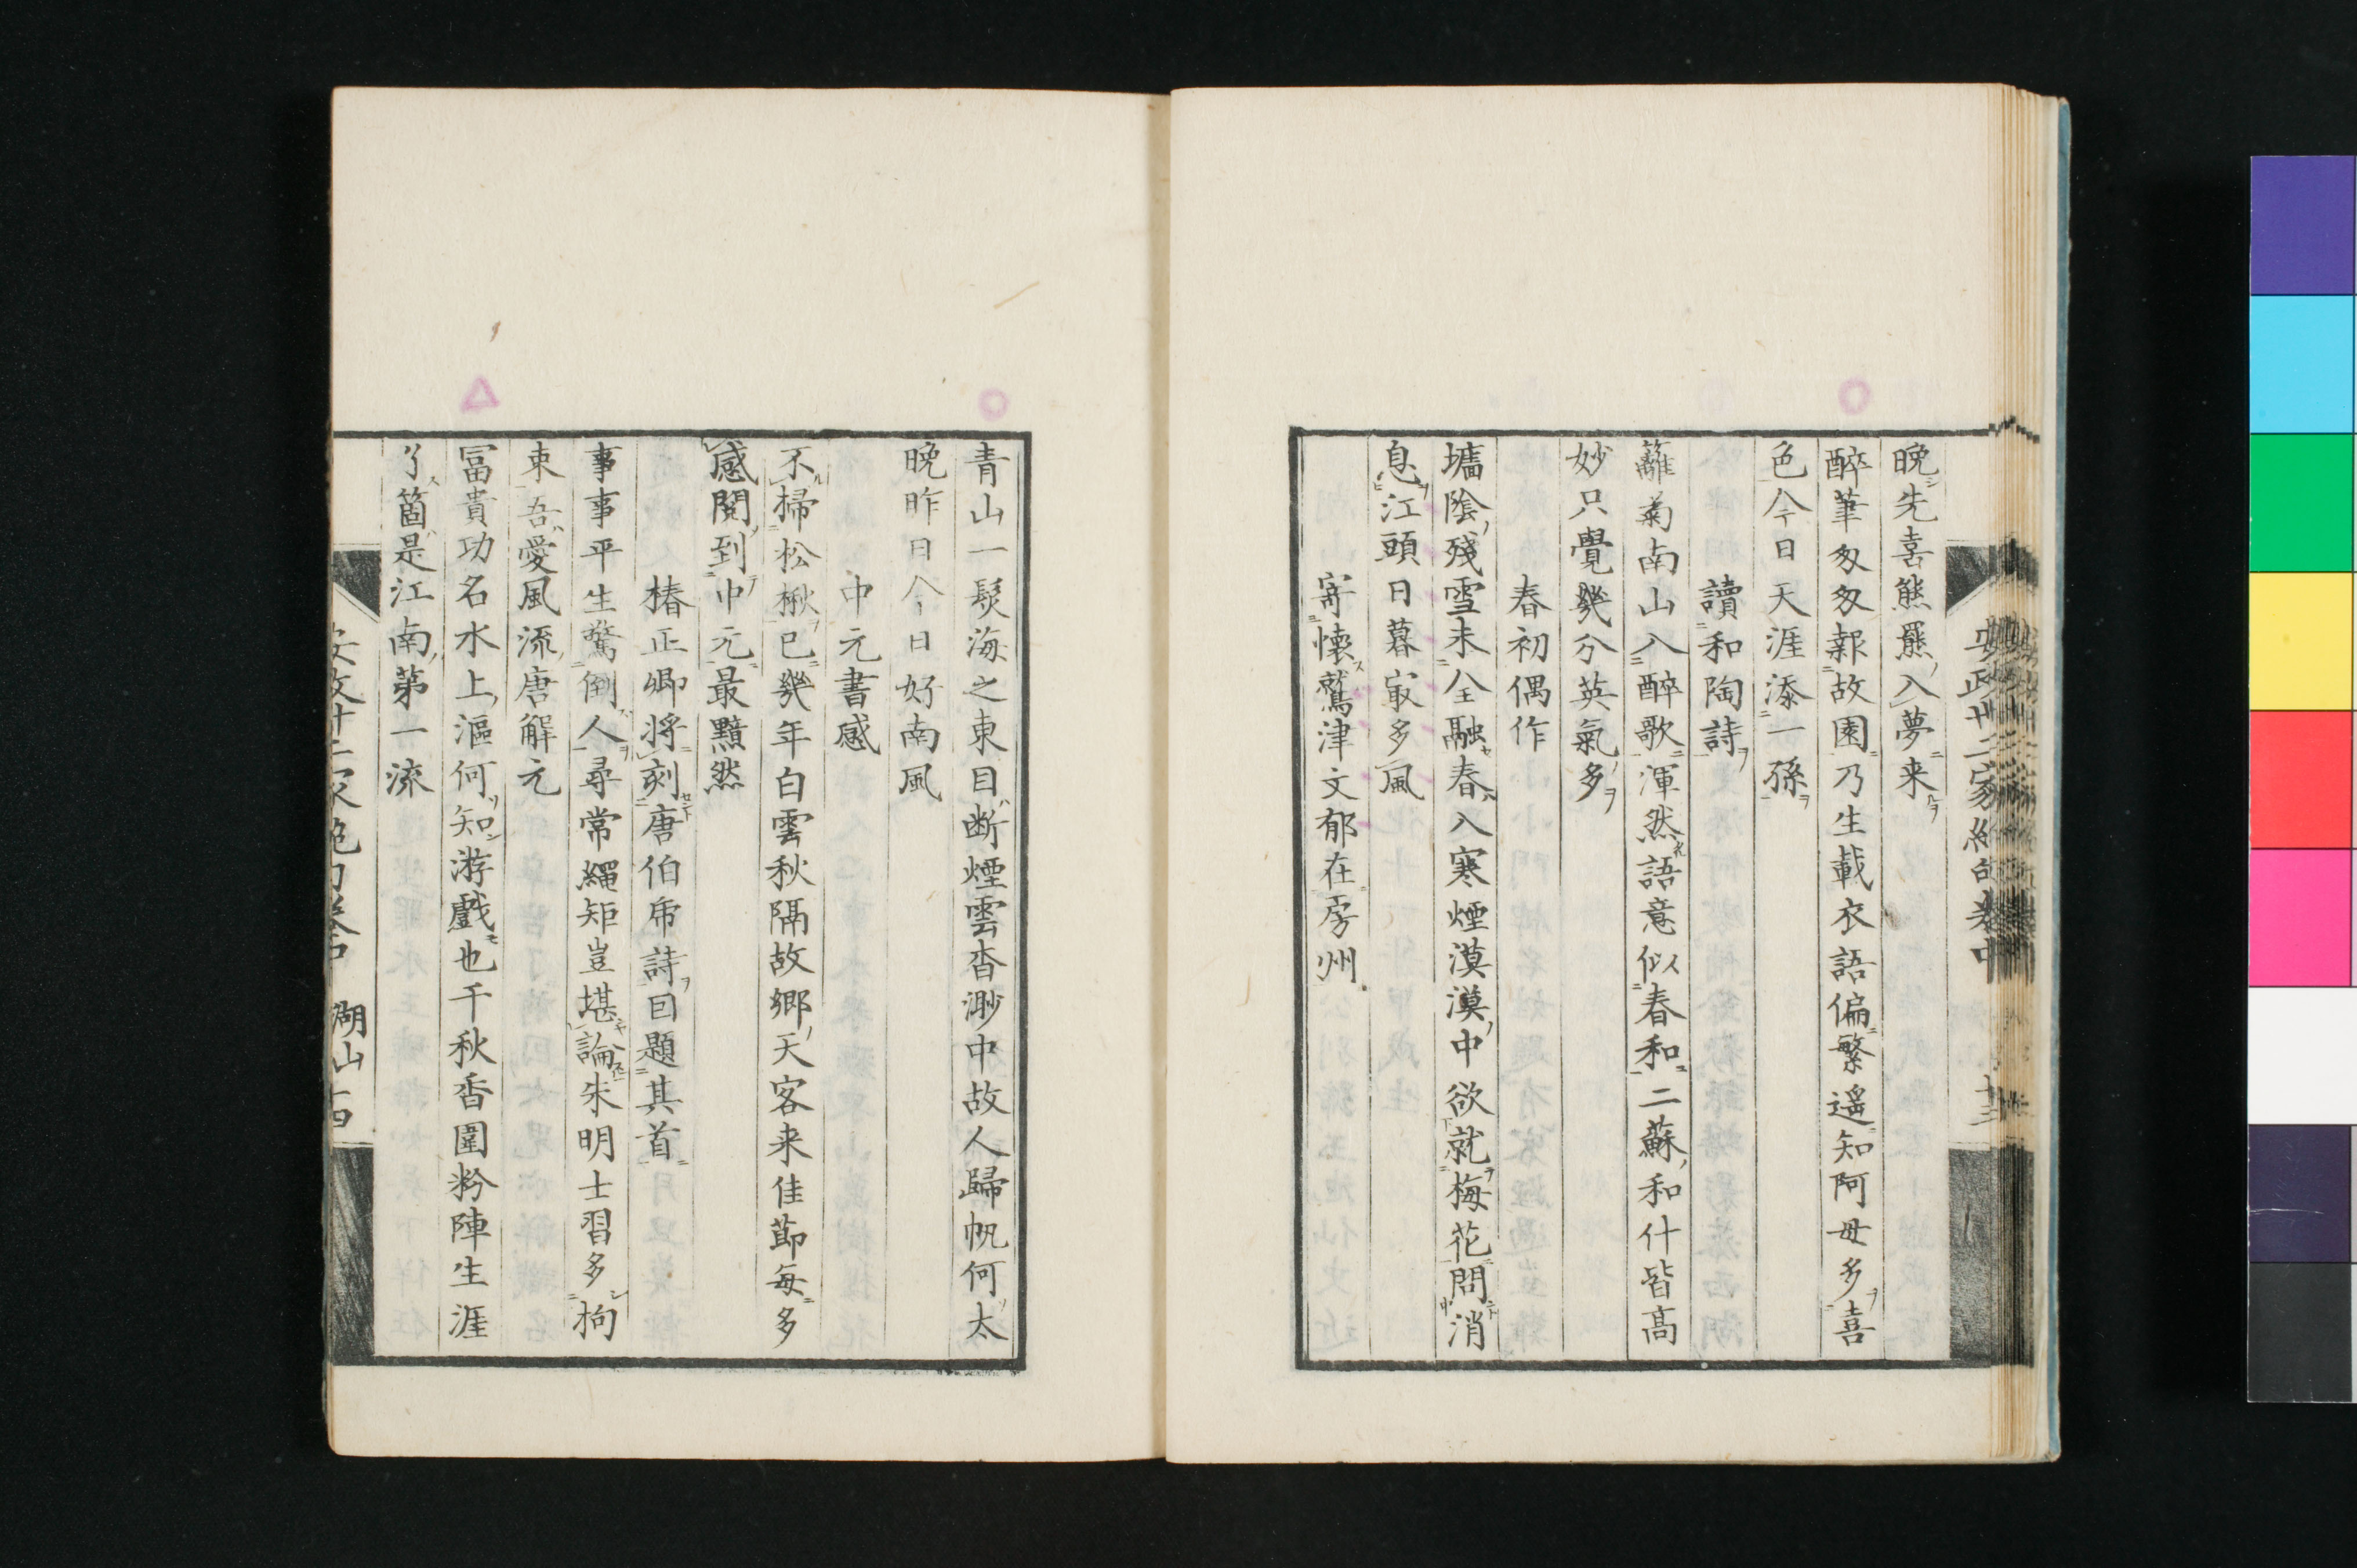 安政卅二家絶句卷中
晚先喜熊羆入夢来
醉筆匆匆報故園乃生載衣語偏繁遥知阿母多喜
色今日天涯添一孫
讀和陶詩
籬菊南山入醉歌渾然語意似春和二蘇和什皆高
妙只覺幾分英氣多
春初偶作
墻陰殘雪未全融春入寒煙漠漠中欲就梅花問消
息江頭日暮㝡多風
寄懐鷲津文郁在房州
青山一髮海之東目断煙雲杳渺中故人歸帆何太
晚昨日今日好南風
中元書感
不掃松楸已幾年白雲秋隔故郷天客来佳莭每多
感閱到中元最黯然
椿正卿將刻唐伯乕詩目題其首
事事平生驚倒人尋常繩矩豈堪論朱明士習多拘
束吾愛風流唐解元
冨貴功名水上漚何知游戲也千秋香圍粉陣生涯
了箇是江南第一流
湖山 十四